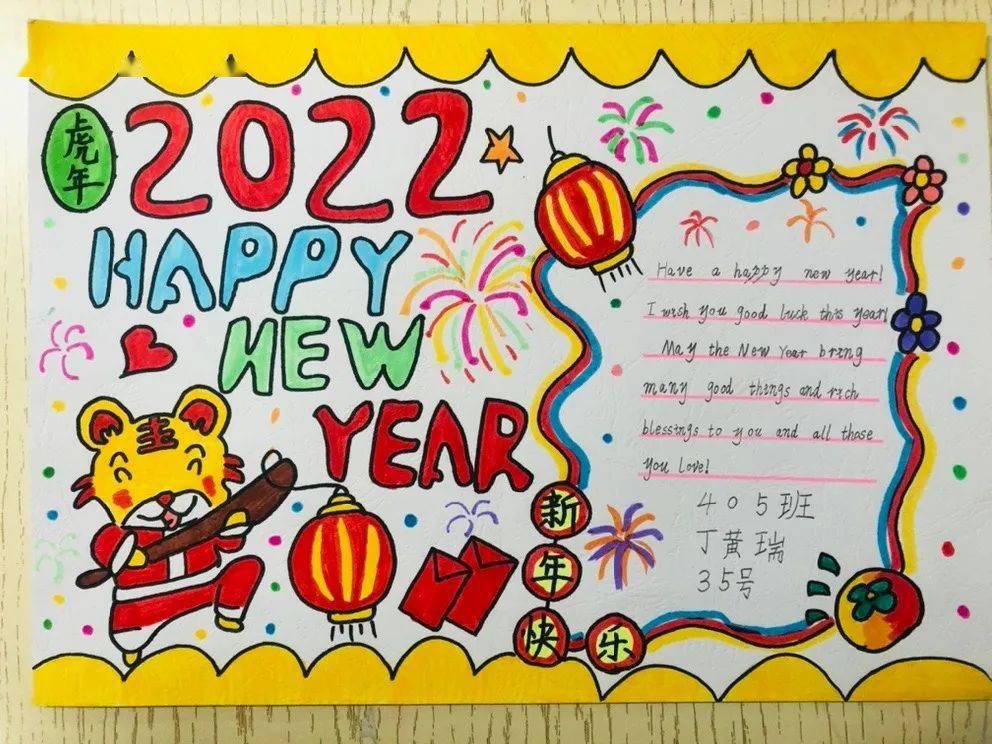 虎年
2022
HAPPY
NEW
YEAR
Have a happy new year!
I wish you good luck this year!
May the New Year bring
many good things and rich
blessings to you and all those
you love!
405班
丁黄瑞
35号
新年快乐